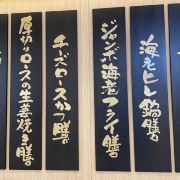 海老ヒレ鍋膳
ジャンボ海老フライ膳
チーズロースかつ膳
厚切りロースの生姜焼き膳